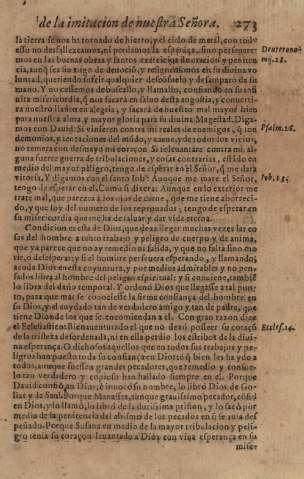 de la imitacion de nuestra Señora. 273
la tierra se nos ha tornado de hierro, y el cielo de metal, con todo
esso no desfallezcamos, ni perdamos la esperãça, sino perseuere-
mos en las buenas obras y santos exercicios de oracion y peniten
cia, aunq̃ sea sin jugo de deuocion, y resignandonos en su diuina vo
luntad, queriendo sufrir qualquier desconsuelo y desamparo de su
mano. Y no cessemos de buscallo, y llamallo, confiando en su infi
nita misericordia, q̃ nos sacará en saluo desta angustia, y conuerti
ra nuestro llanto en alegria, y sacará de nuestro mal mayor bien
para nuestra alma, y mayor gloria para su diuina Magestad. Diga
mos con Dauid: Si vinieren contra mi reales de enemigos, q̃ son
demonios, y tentaciones del mũdo, y carne, y de todos los vicios,
no temera con desmayo mi coraçon. Si se leuantare contra mi, al-
guna fuerte guerra de tribulaciones, y cosas contrarias, estãdo en
medio del mayor peligro, tengo de esperar en el Señor, q̃ me dará
vitoria. Y digamos con el santo Iob: Aunque me mate el Señor,
tengo de esperar en el. Como si dixera: Aunque en lo exterior me
trate mal, que parezca a los ojos de
que me tiene aborreci-
do, y que soy del numero de los reprouados, tengo de esperar en
su misericordia que me ha de saluar, y dar vida eterna.
Condicion es esta de Dios, que dexa llegar muchas vezes las co
sas del hombre a sumo trabajo y peligro de cuerpo y de anima,
que ya parece que no ay remedio ni salida, y que no falta sino mo
rir, o desesperar: y si el hombre perseuera esperando, y llamando,
acude Dios en esta coyuntura, y por medios admirables y no pen-
sados libra al hombre del peligro espiritual; y si conuiene, tambiẽ
lo libra del daño temporal. Y ordenò Dios que llegasse a tal pun-
to, para que mas se conociesse la firme confiança del hombre en
su Dios, y el cuydado tan de verdadero amigo y tan de padre, que
tiene Dios de los que se encomiendan a el. Con gran razon dize
el Eclesiastico: Bienauenturado el que no dexò posseer su coraçõ
de la tristeza desordenada, ni en ella perdio los estriuos de la diui-
na esperança. O dichosos aquellos que en todos sus trabajos y pe-
ligros han puesto toda su confiança en Dios: todo q̃ bien les ha ydo a
todos, aunque fuessen grandes pecadores, que remedio y consue-
lo tan verdadero y copioso han hallado siempre en el. Porque
Dauid confiò en Dios, è inuocò su nombre, lo librò Dios de Go-
lias y de Saul. Porque Manasses, aunque grauissimo pecador, cõfiò
en Dios, y lo llamò, lo librò de la durissima prision, y lo sacò por
medio de la penitencia del abismo de los pecados en q̃ se auia des
peñado. Porque Susana en medio de la mayor tribulacion y peli-
gro tenia su coraçon leuantado a Dios con viua esperança en su
miser
Psalm. 26.
Iob. 13.